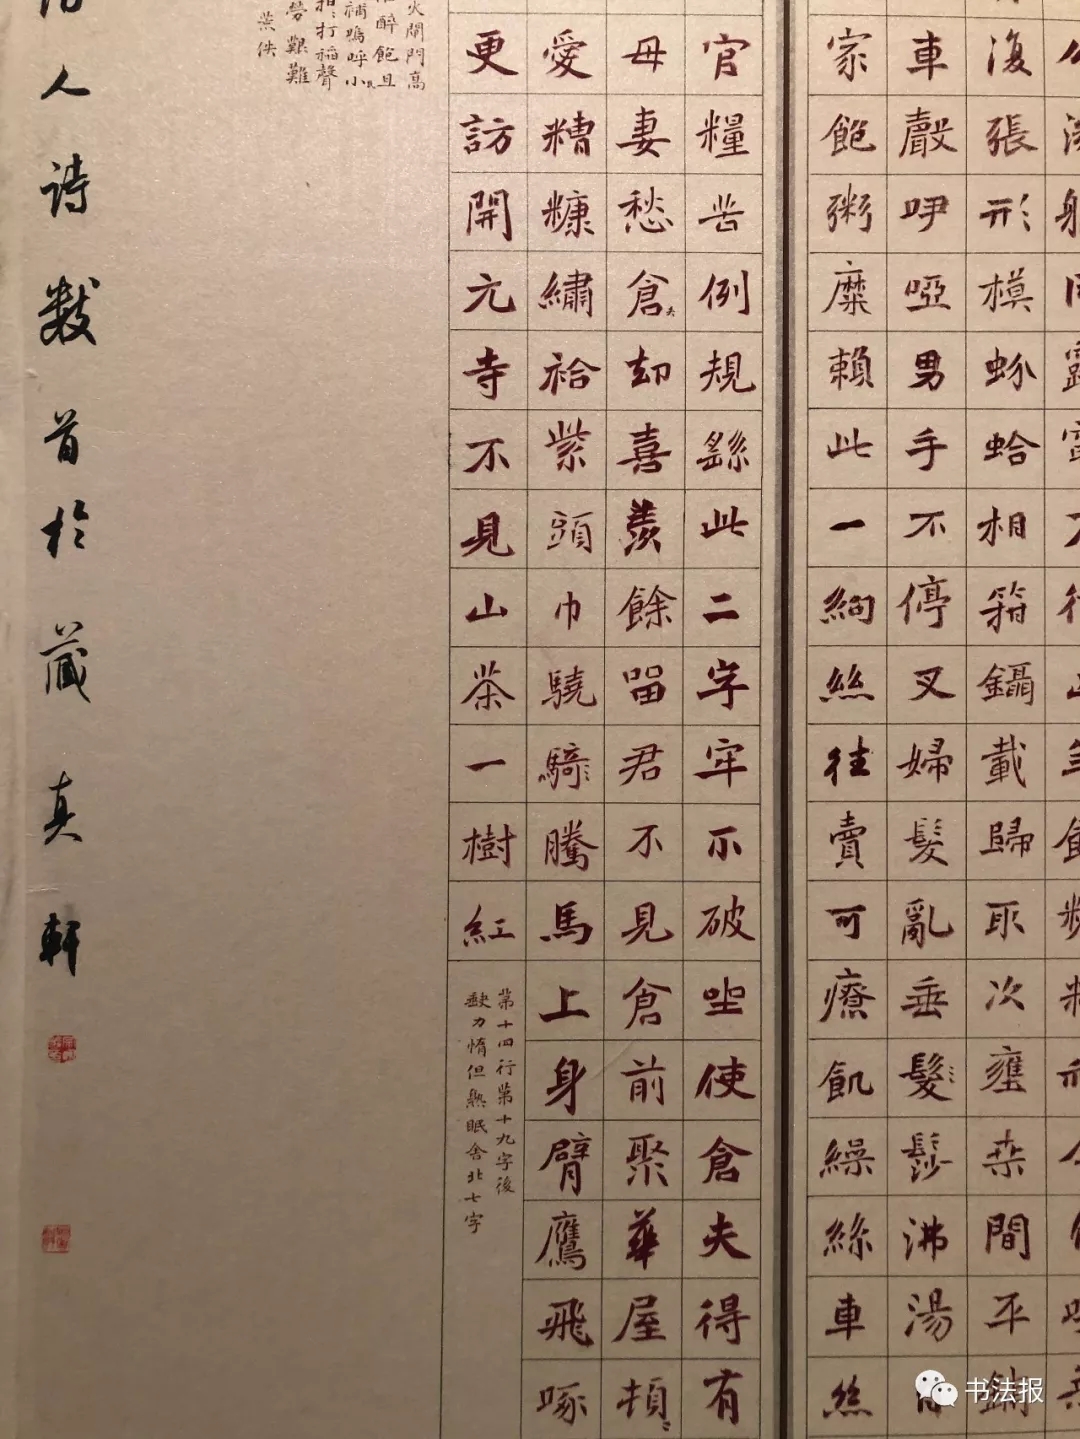 復張形模蚴蛤相箝鑷載歸取次壅桒間平
車聲咿啞男手不停叉婦髮亂垂鬟鬆沸湯
家飽粥糜賴此一絇絲往賣可療飢繰絲車絲
官糧苦例規繇此二字牢不破坐使倉夫得有
母妻愁倉夫却喜羨餘留君不見倉前聚華屋頓
愛糟糠繡袷紫頭巾驍騎騰馬上身臂鷹飛啄
更訪開元寺不見山茶一樹紅
第十四行第十九字後
缺力惰但熟眠舍北七字
火開門高
醉飽且
補嗚呼小
打稲聲
勞艱難
葉佚
人诗數首於藏真軒
书法报